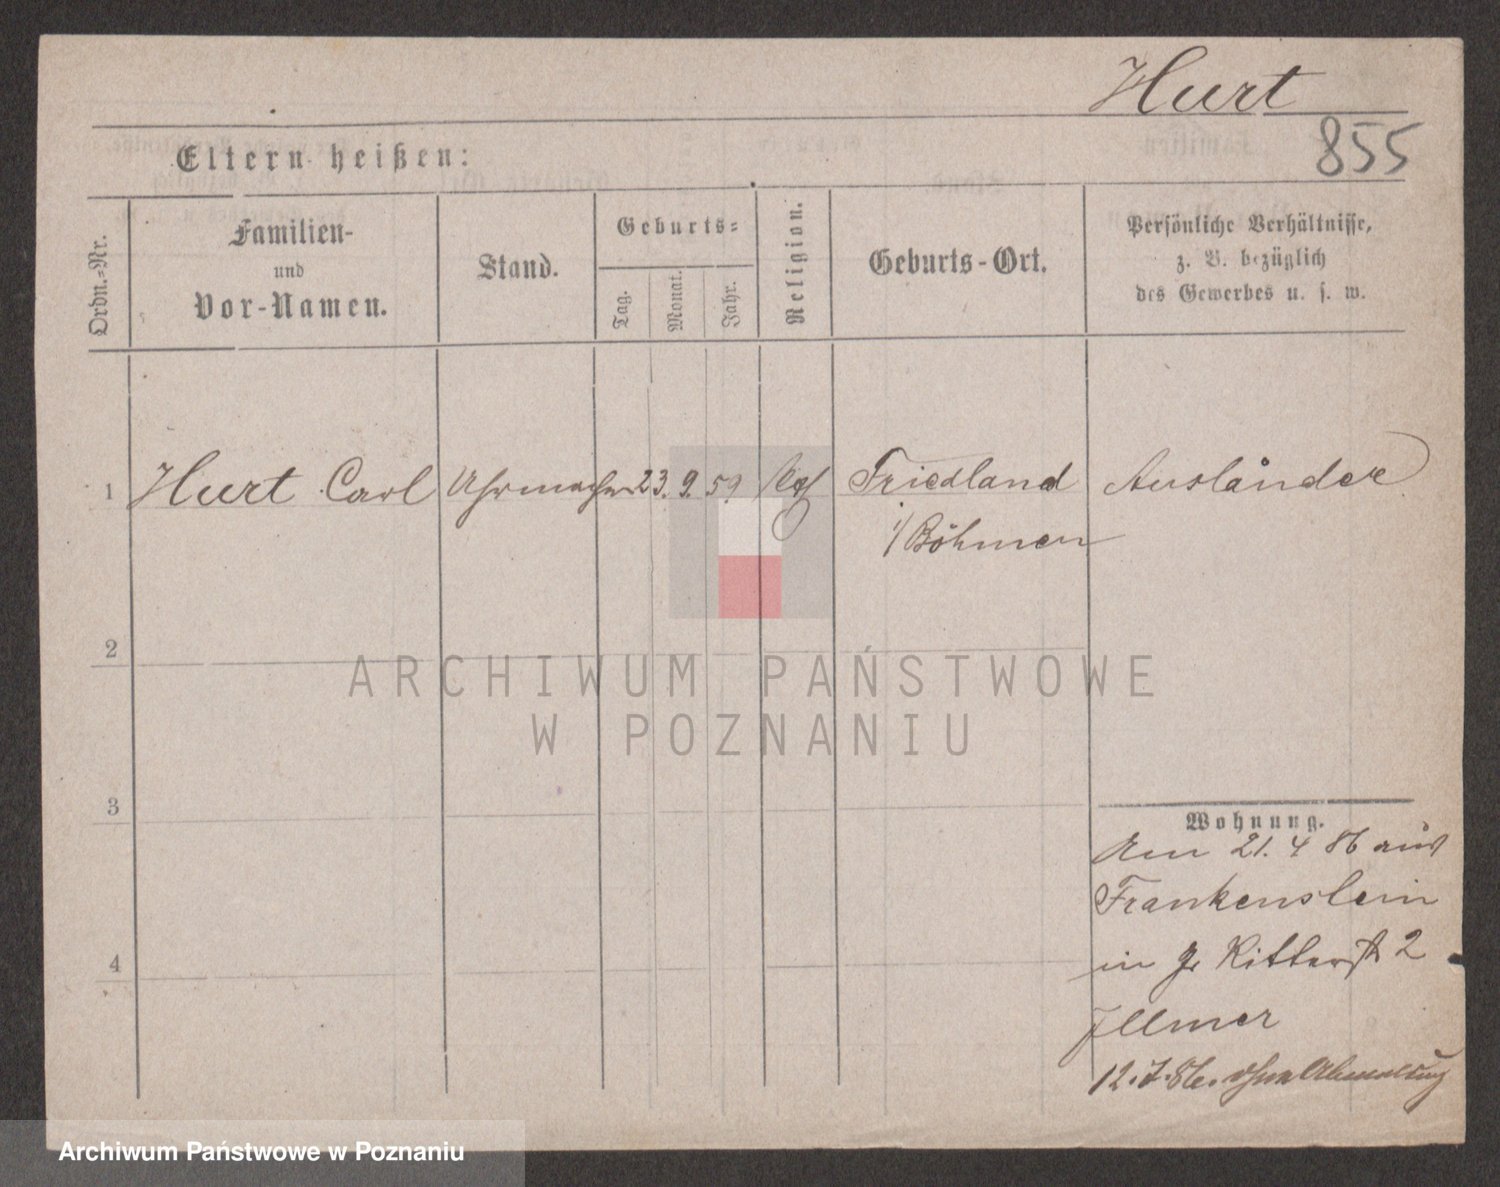 Hurt
855
Eltern heißen:
Ordn.-Nr.
Familien-
und
Vor-Namen.
Stand.
Geburts-
Tag.
Monat.
Jahr.
Religion.
Geburts-Ort.
Persönliche Verhältnisse,
z. B. bezüglich
des Gewerbes u. s. w.
1 Hurt Carl Uhrmacher 23. 9. 59 Friedland Ausländer
i/Böhmen
2
ARCHIWUM PAŃSTWOWE
W POZNANIU
3
Wohnung.
Am 21. 4 86 aus
Frankenstein
in gr Ritterstr 2
Illmer
12. 7. 86. ohne Abmeldung
4
Archiwum Państwowe w Poznaniu